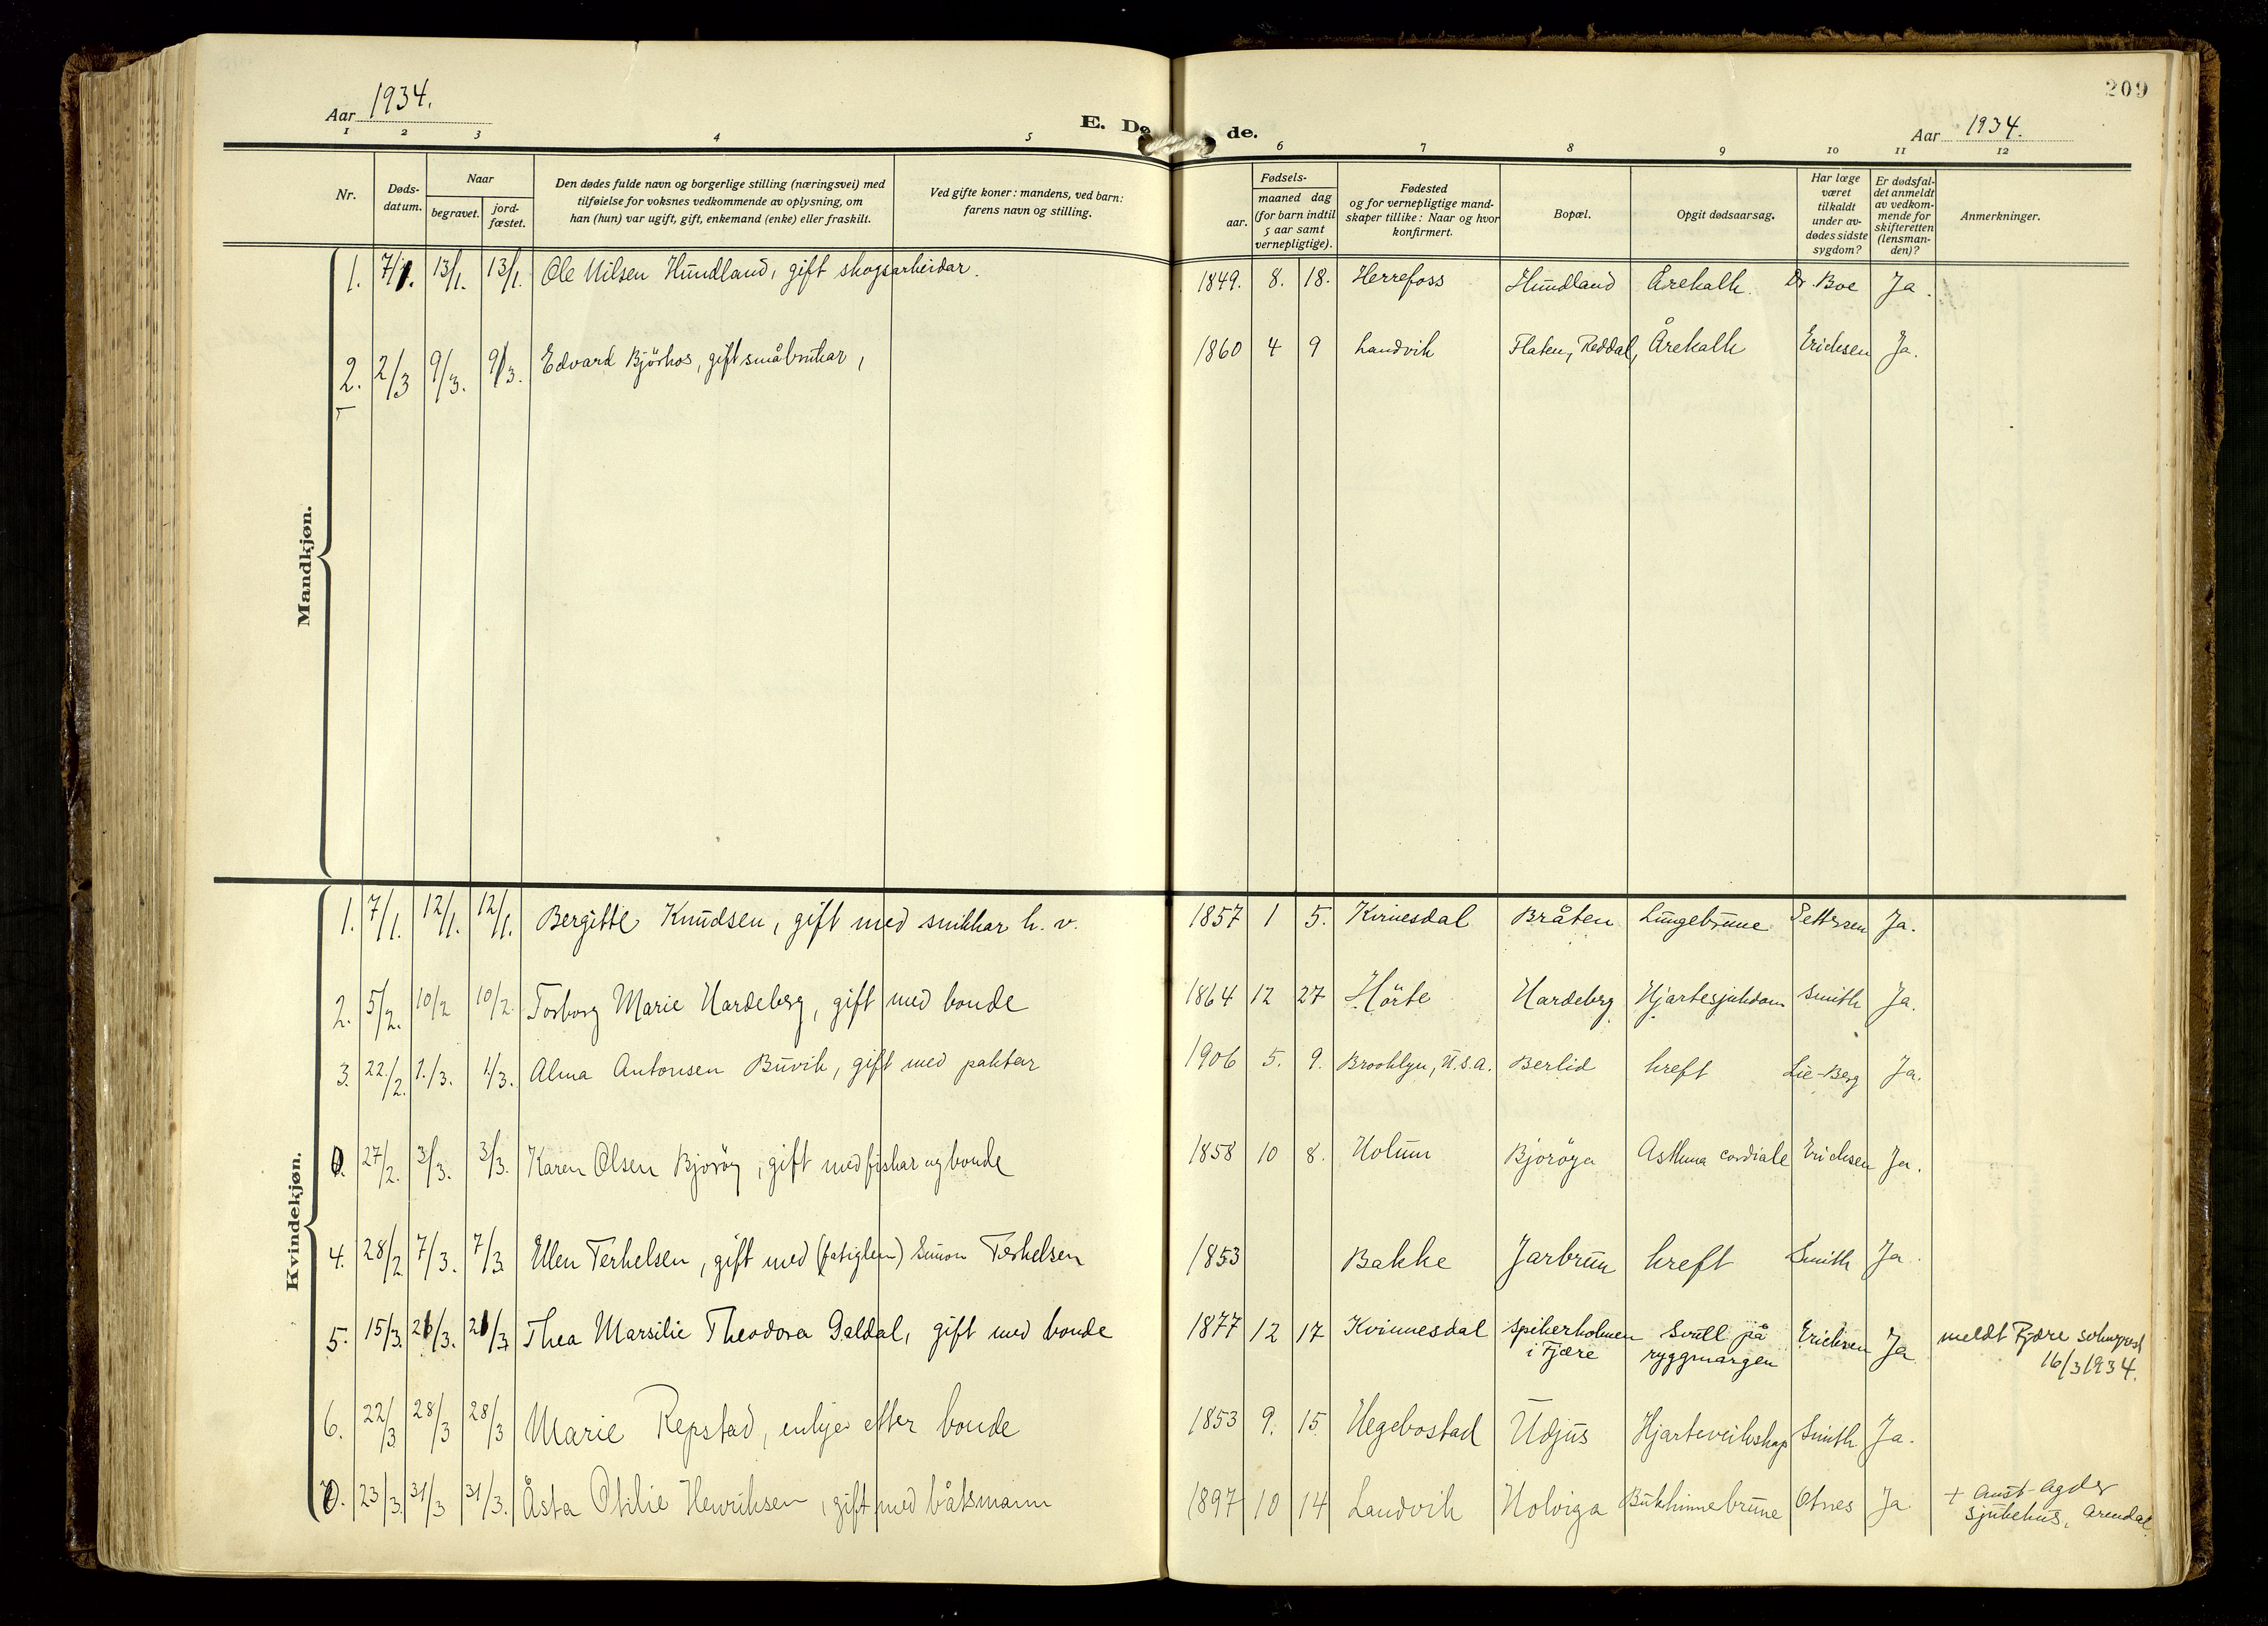 209
Aar 1934.
E. Dø de.
Aar 1934.
1 2 3 4 5 6 7 8 9 10 11 12
Nr.
Døds-
datum.
Naar
begravet.
jord-
fæstet.
Den dødes fulde navn og borgerlige stilling (næringsvei) med
tilføielse for voksnes vedkommende av oplysning, om
han (hun) var ugift, gift, enkemand (enke) eller fraskilt.
Ved gifte koner: mandens, ved barn:
farens navn og stilling.
Fødsels-
aar.
maaned dag
(for barn indtil
5 aar samt
vernepligtige).
Fødested
og for vernepligtige mand-
skaper tillike: Naar og hvor
konfirmert.
Bopæl.
Opgit dødsaarsag.
Har læge
været
tilkaldt
under av-
dødes sidste
sygdom?
Er dødsfal-
det anmeldt
av vedkom-
mende for
skifteretten
(lensman-
den)?
Anmerkninger.
Mandkjøn.
1. 7/1. 13/1. 13/1. Ole Nilsen Hundland, gift skogsarbeidar. 1849. 8. 18. Herrefoss Hundland Årekalk Dr. Boe Ja.
2. 2/3 9/3. 9/3. Edvard Bjørkos, gift småbrukar, 1860 4 9 Landvik Flaten, Reddal, Årekalk Erichsen Ja.
Kvindekjøn.
1. 7/1. 12/1. 12/1. Bergitte Knudsen, gift med snikkar h. v. 1857 1 5. Kvinesdal Bråten Lungebrune Pettersen Ja.
2. 5/2. 10/2 10/2. Torborg Marie Hardeberg, gift med bonde 1864 12 27 Hörte Hardeberg Hjartesjukdom Smith Ja.
3. 22/2. 1./3. 1/3. Alma Antonsen Buvik, gift med paktar 1906 5. 9. Brooklyn, U.S.A. Berlid kreft Lie-Berg Ja.
0. 27/2. 3/3. 3/3. Karen Olsen Bjorøy, gift med fiskar og bonde 1858 10 8. Holum Bjorøya Asthma cordiale Erichsen Ja.
4. 28/2 7/3. 7/3 Ellen Terkelsen, gift med (fatiglem) Simon Terkelsen 1853 Bakke Jarbrun kreft Smith Ja.
5. 15/3. 21/3. 21/3 Thea Marsilie Theodora Galdal, gift med bonde 1877 12 17 Kvinnesdal Spikerholmen Svull på Erichsen Ja meldt Fjære
i Fjære ryggmargen 16/3 1934.
6. 22/3 28/3 28/3 Marie Repstad, enkje etter bonde 1853 9. 15. Hegebostad Udjus Hjarteveikskap Smith Ja.
0. 23/3. 31/3 31/3. Åsta Otilie Henriksen, gift med båtsmann 1897 10 14 Landvik Holviga Bukhinnebrune Otnes Ja + Aust-Agder
sjukehus, Arendal.